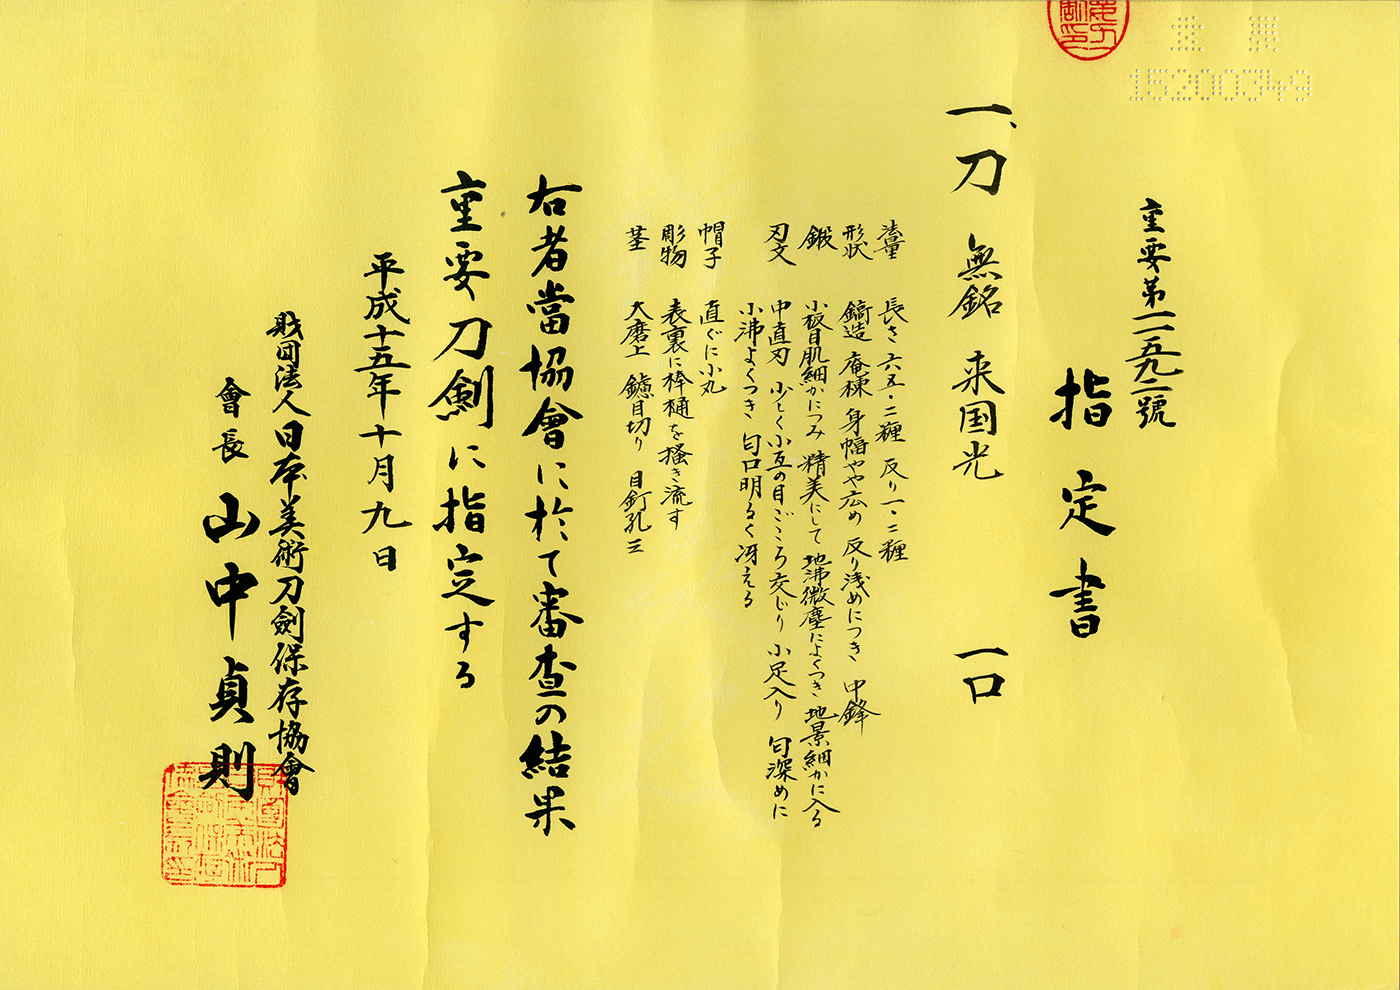 15200349
重要第一一五九二號
指定書
一、刀 無銘 来国光 一口
法量 長さ 六五・二糎 反り 一・二糎
形状 鎬造 庵棟 身幅やや広め 反り浅めにつき 中鋒
鍛 小板目肌細かにつみ 精美にして 地沸微塵によくつき 地景細かに入る
刃文 中直刃 少しく小互の目ごころ交じり 小足入り 匂深めに
小沸よくつき 匂口明るく冴える
帽子 直ぐに小丸
彫物 表裏に棒樋を掻き流す
茎 大磨上 鑢目切り 目釘孔三
右者當協會に於て審査の結果
重要刀剣に指定する
平成十五年十月九日
財団法人日本美術刀劍保存協會
會長 山中貞則